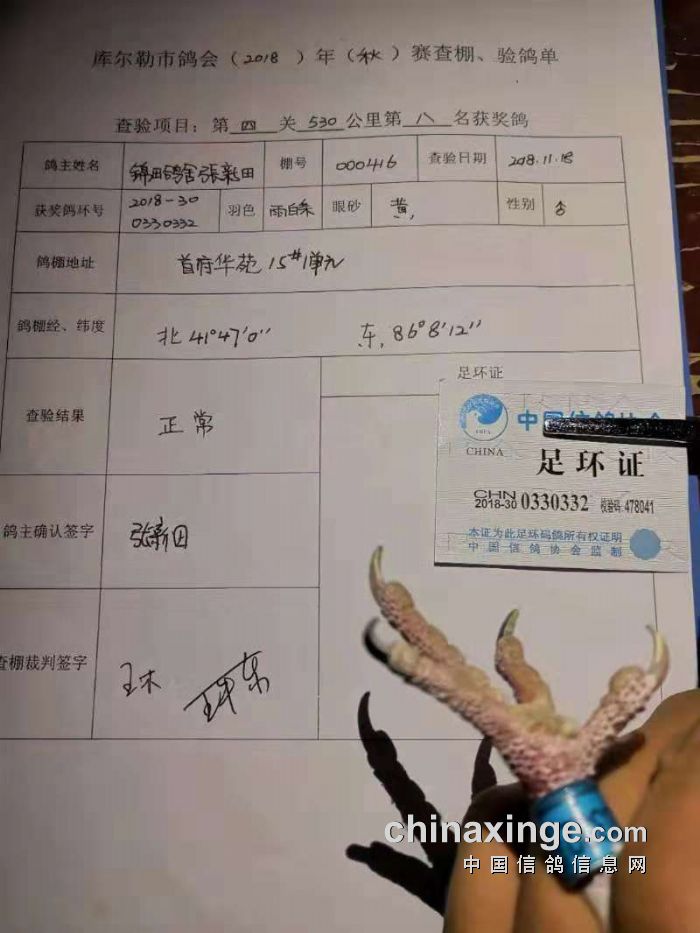 库尔勒市鸽会（2018）年（秋）赛查棚、验鸽单
查验项目：第四关530公里第八名获奖鸽
鸽主姓名 锦田鸽舍张新田 棚号 000416 查验日期 2018.11.18
获奖鸽环号 2018-30 0330332 羽色 雨白条 眼砂 黄, 性别 合
鸽棚地址 首府华苑15#1单元
鸽棚经、纬度 北41°47'0" 东,86°8'12"
足环证
查验结果 正常
中国信鸽协会
CHINA
足环证
CHN
2018-30 0330332 校验码:478041
本证为此足环码鸽所有权证明
中国信鸽协会监制
鸽主确认签字 张新田
查棚裁判签字 王木
chinaxinge.com
中国信鸽信息网